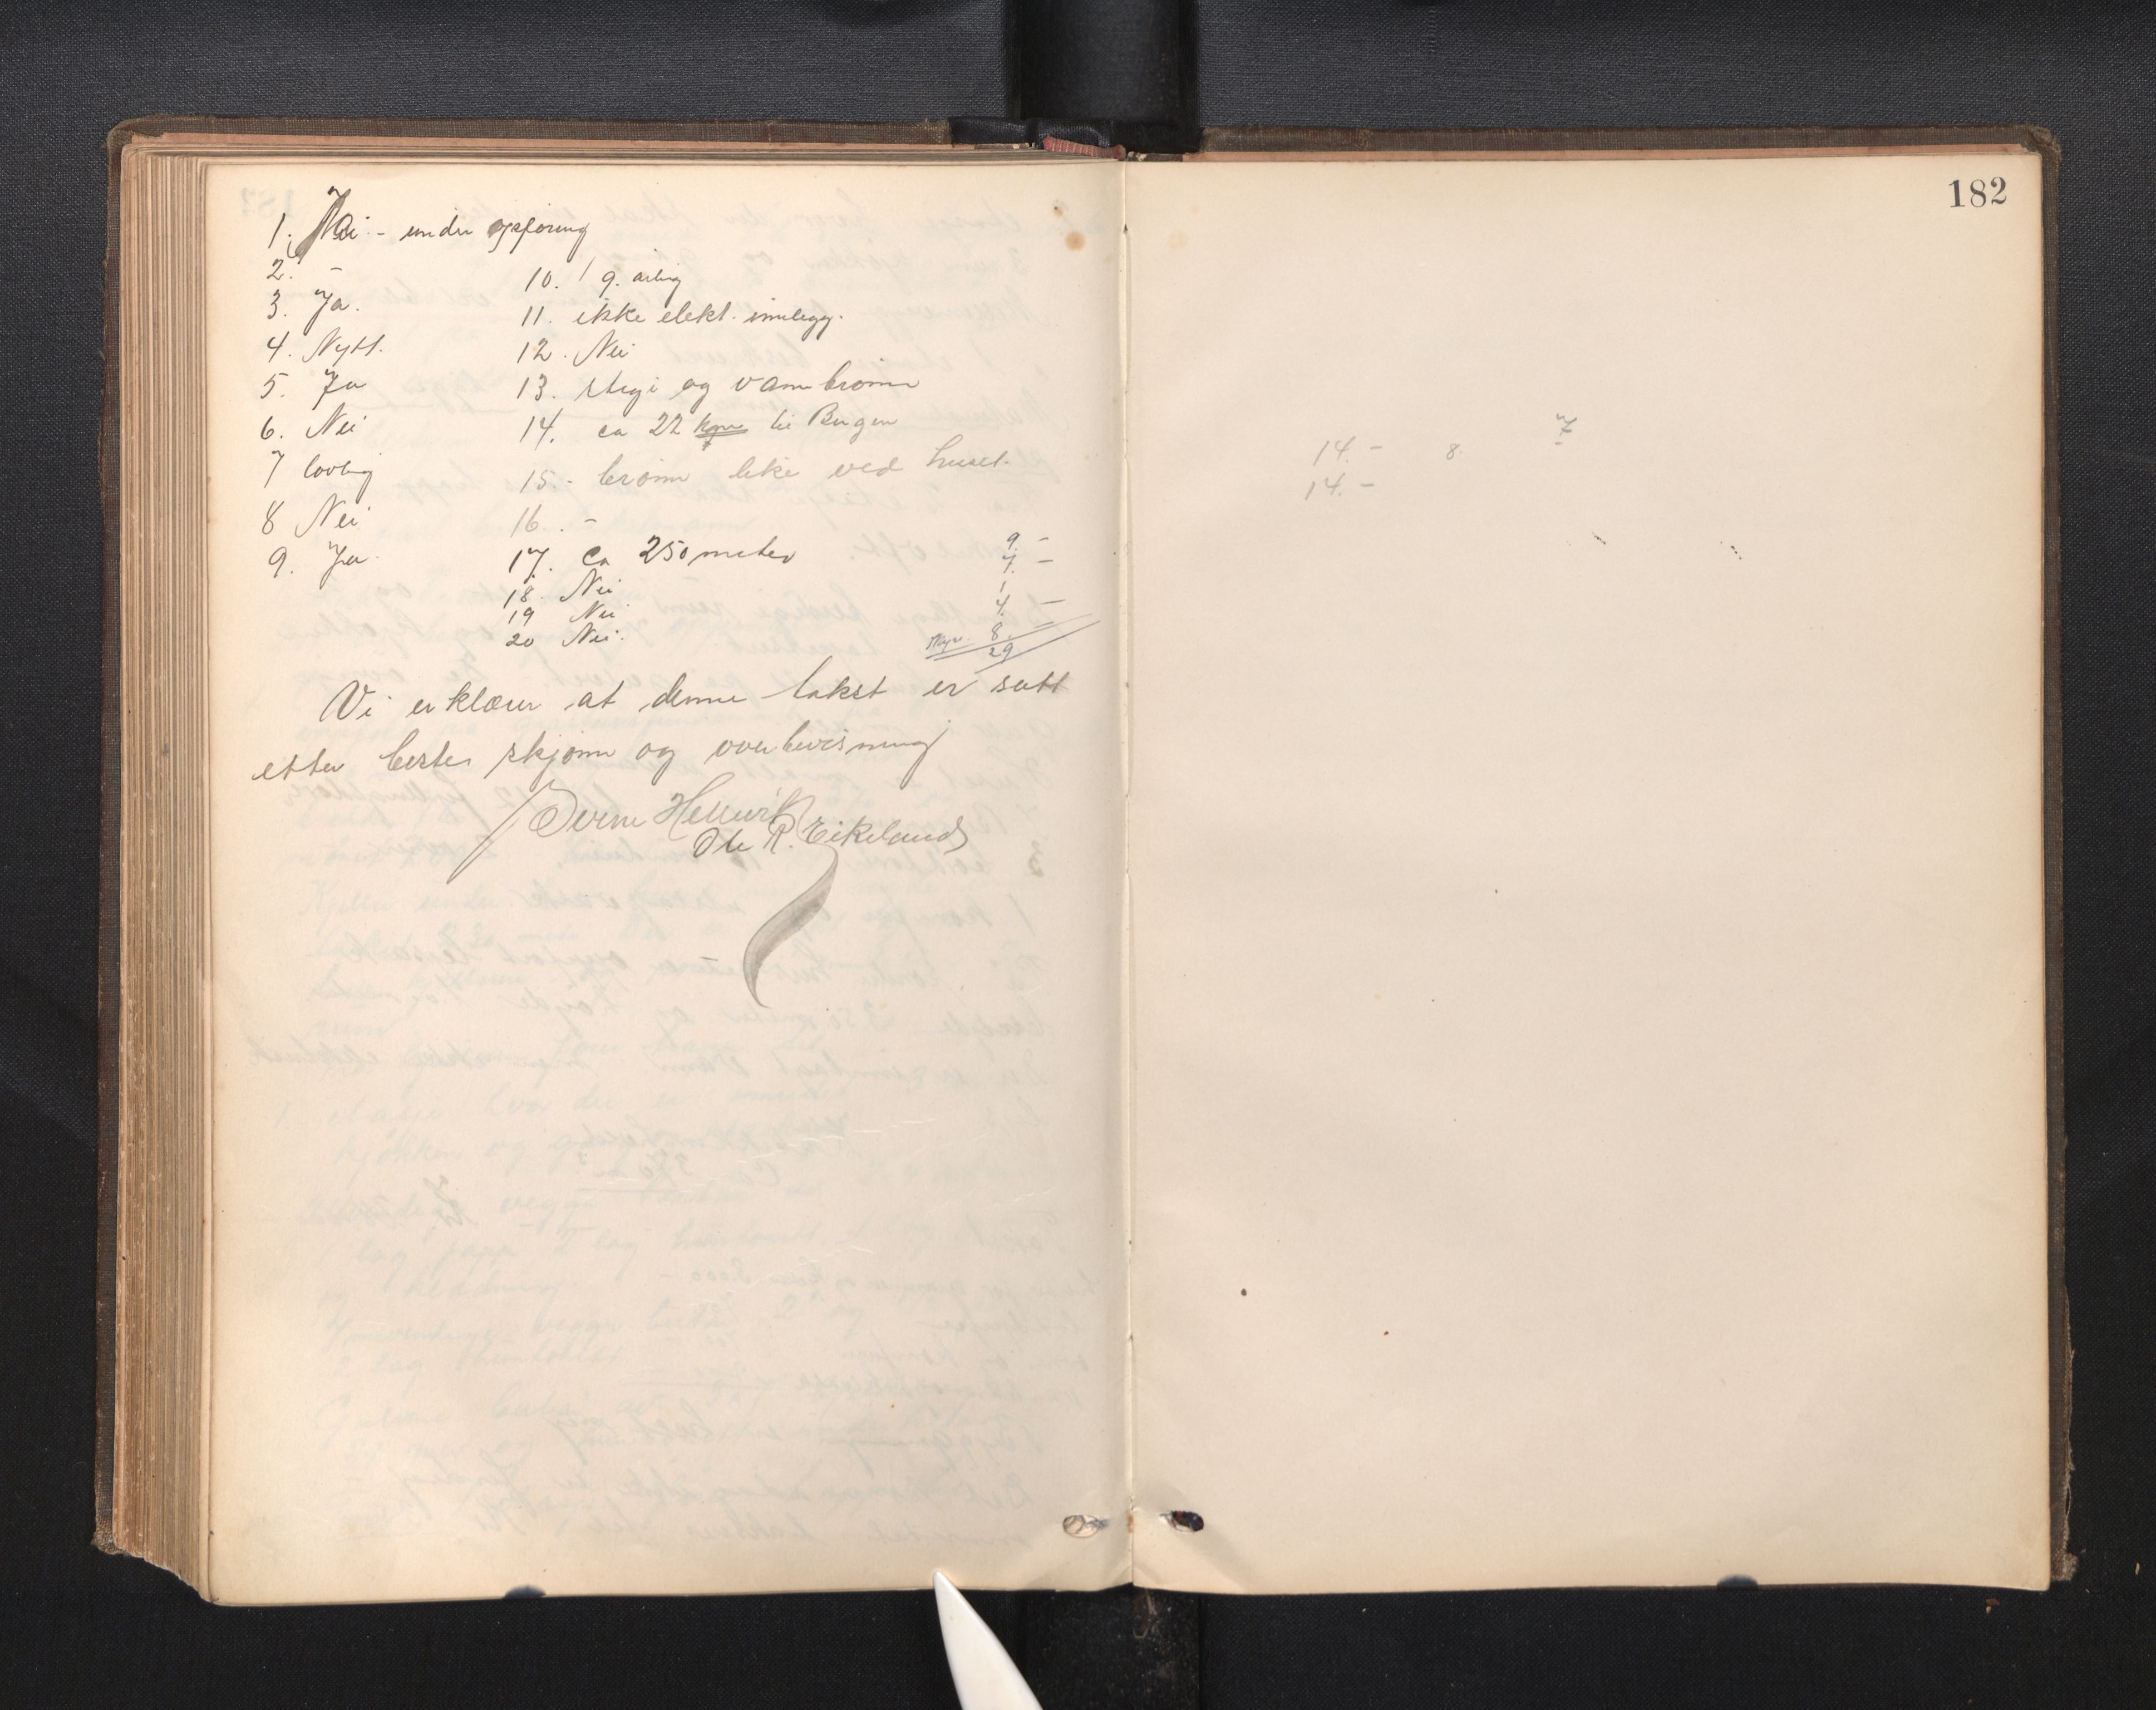 1. Nei - under opføring
2. -
3. Ja.
4. Nytt.
5. Ja
6. Nei
7 lovlig
8 Nei
9. Ja
10. 1 g. årlig
11. ikke elekt. innlegg.
12. Nei
13. stige og vann brønn
14. ca 22 km til Bergen
15. brønn like ved huset.
16. -
17. ca 250 meter
18. Nei
19 Nei
20 Nei.
9. -
7. -
4. -
8. -
29
Vi erklærer at denne takst er satt
etter beste skjønn og overbevisning
Hellevik
Ole R. Eikeland
182
7
14. - 8.
14. -